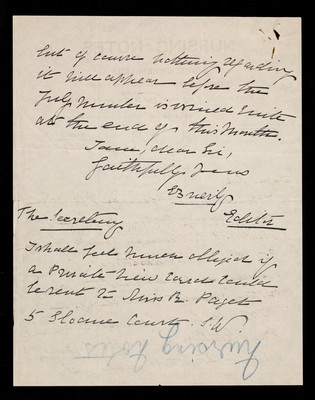 but of course nothing regarding
it will appear before the
July number is issued quite
at the end of this month.
I am, dear Sir,
faithfully yours
Editor
The Secretary
I shall feel much obliged if
a Private View Card could
be sent to Miss R. Paget
5 Sloane Court. S.W.
Nursing Notes